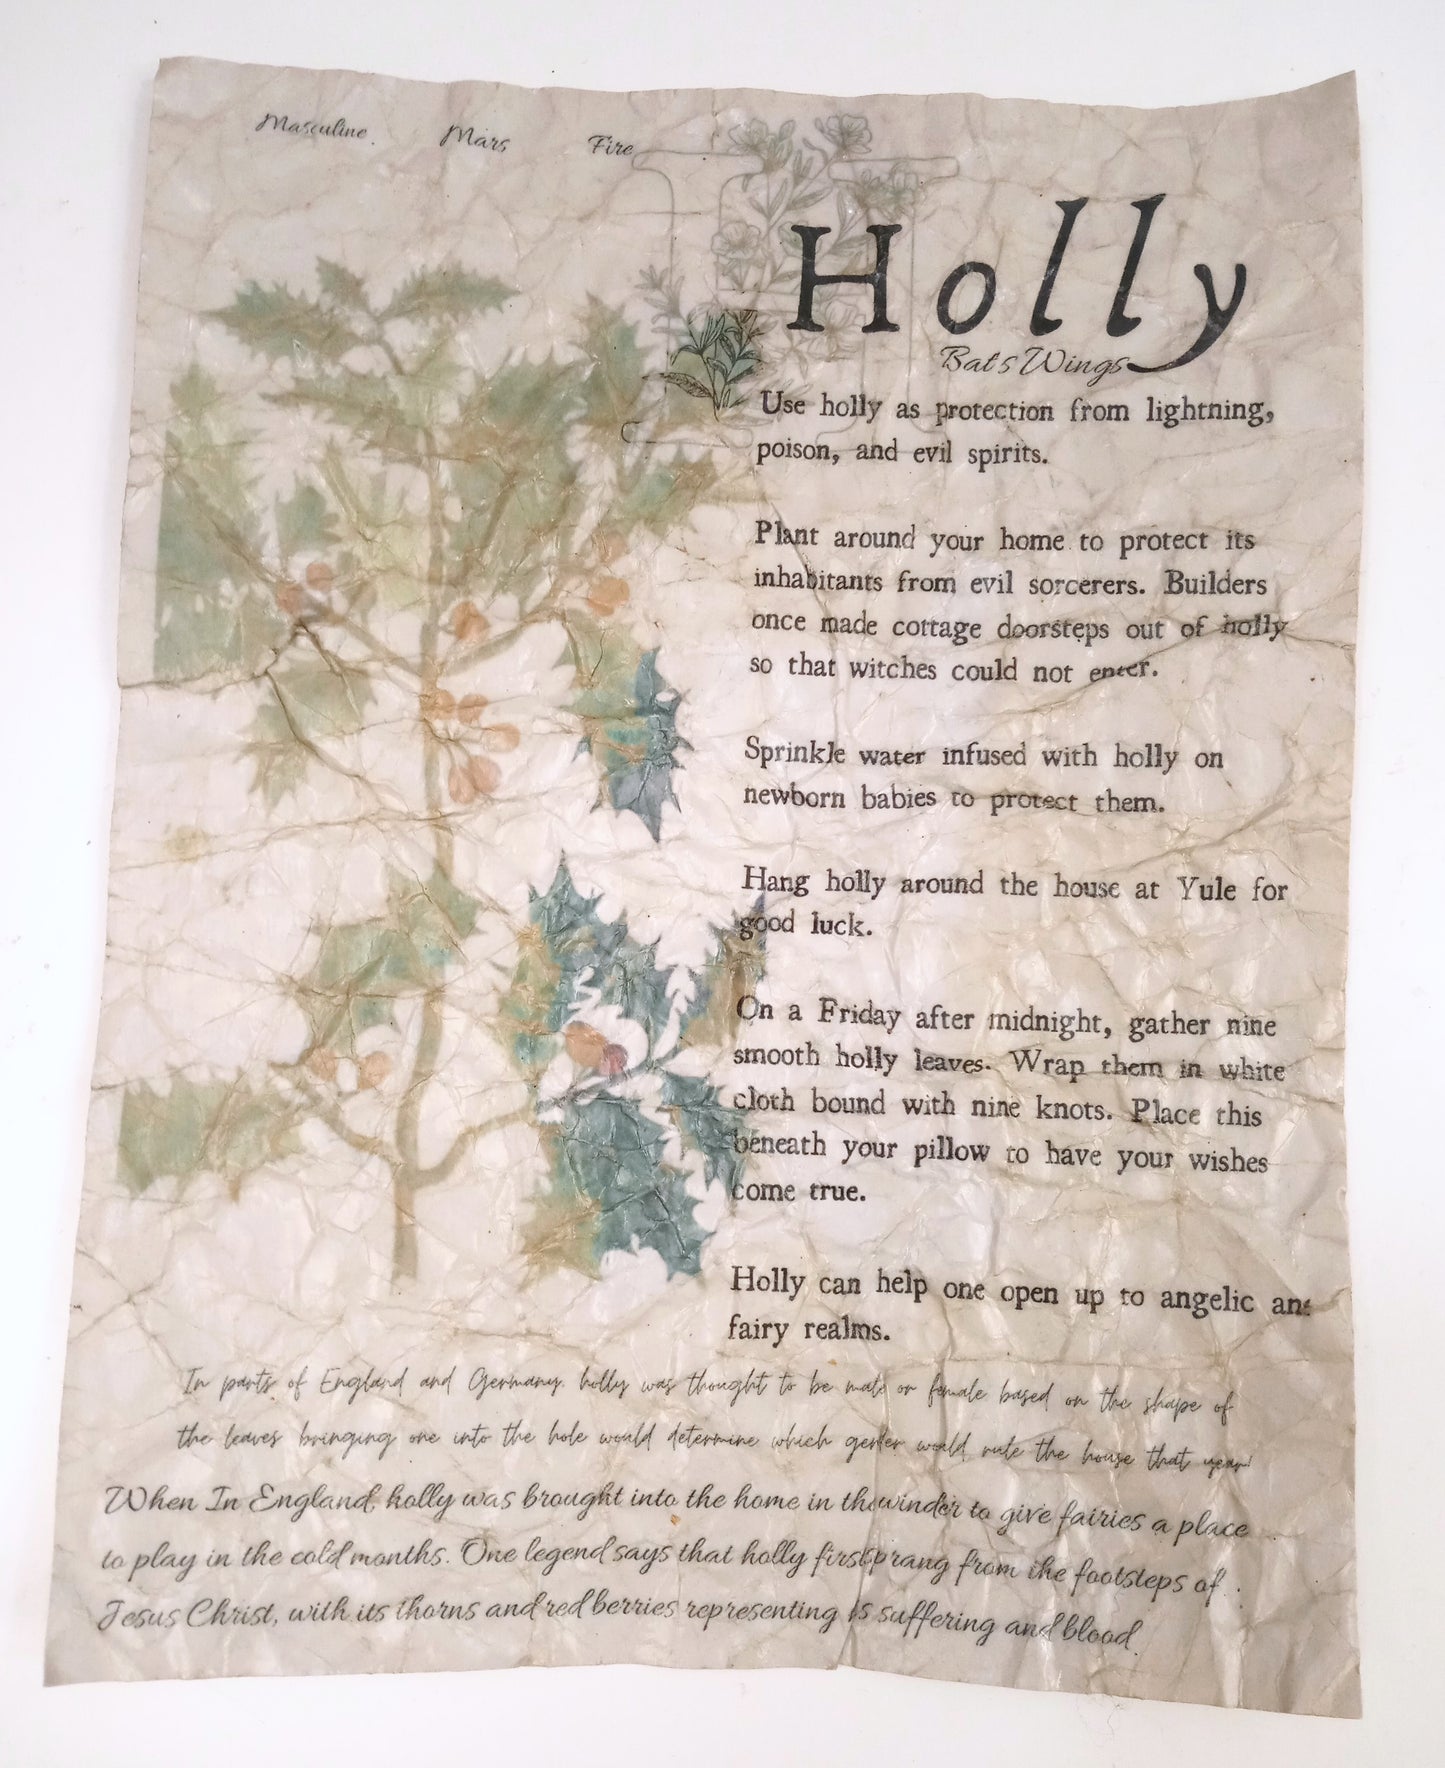 Masculine Mars Fire
Holly
Bat's Wings
Use holly as protection from lightning,
poison, and evil spirits.
Plant around your home to protect its
inhabitants from evil sorcerers. Builders
once made cottage doorsteps out of holly
so that witches could not enter.
Sprinkle water infused with holly on
newborn babies to protect them.
Hang holly around the house at Yule for
good luck.
On a Friday after midnight, gather nine
smooth holly leaves. Wrap them in white
cloth bound with nine knots. Place this
beneath your pillow to have your wishes
come true.
Holly can help one open up to angelic
fairy realms.
In parts of England and Germany, holly was thought to be male or female based on the shape of
the leaves bringing one into the hole would determine which gender would rule the house that year
When In England, holly was brought into the home in the winder to give fairies a place
to play in the cold months. One legend says that holly first sprang from the footsteps of
Jesus Christ, with its thorns and red berries representing suffering and blood.